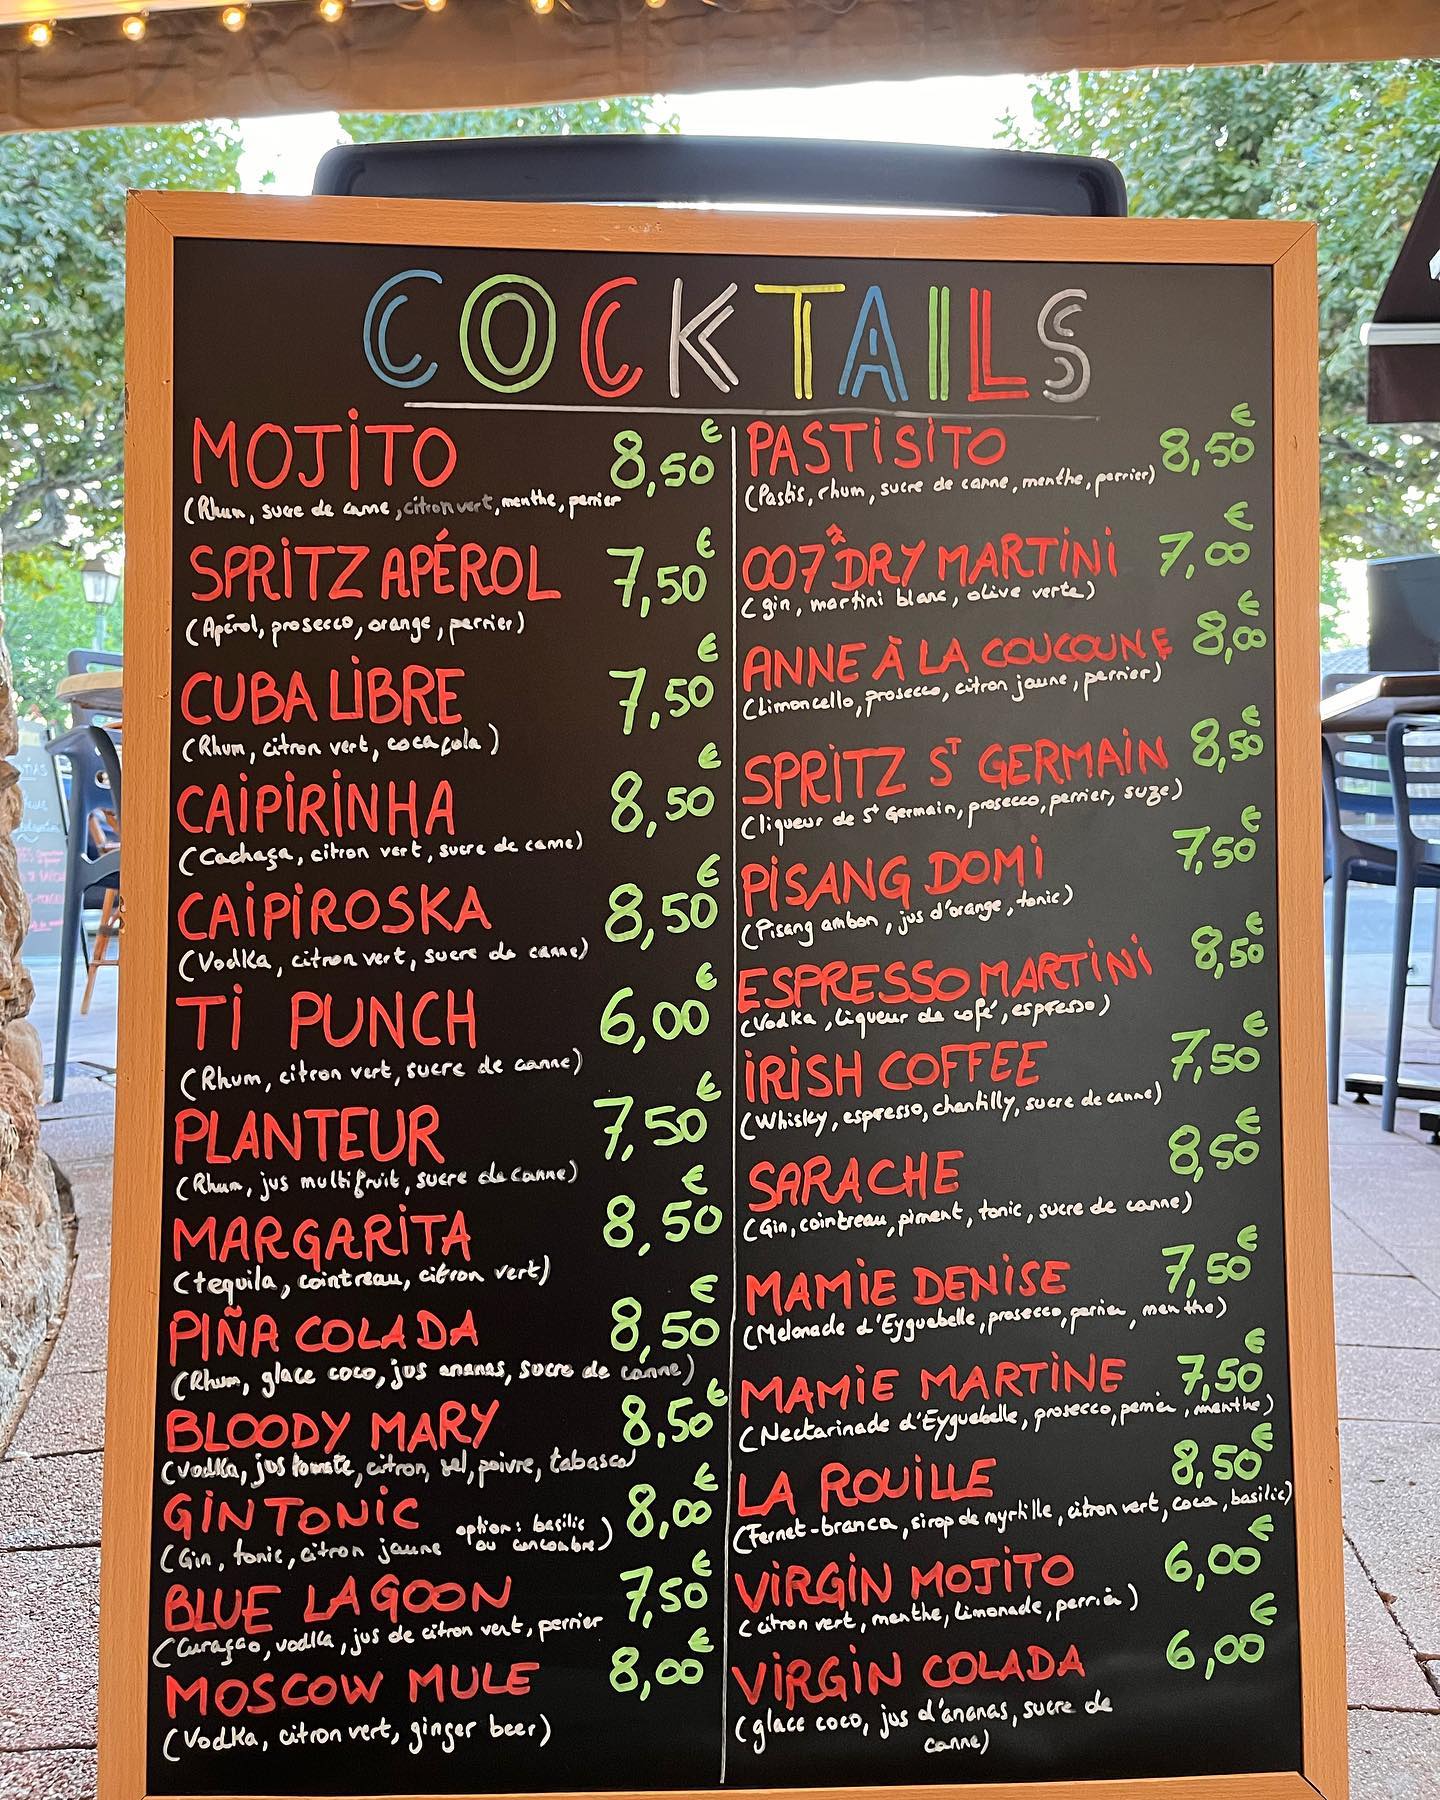 COCKTAILS
MOJITO 8,50€
(Rhum, sucre de canne, citron vert, menthe, perrier
SPRITZ APÉROL 7,50€
(Apérol, prosecco, orange, perrier)
CUBA LIBRE 7,50€
(Rhum, citron vert, coca cola)
CAIPIRINHA 8,50€
(Cachaça, citron vert, sucre de canne)
CAIPIROSKA 8,50€
(Vodka, citron vert, sucre de canne)
TI PUNCH 6,00€
(Rhum, citron vert, sucre de canne)
PLANTEUR 7,50€
(Rhum, jus multifruit, sucre de canne)
MARGARITA 8,50€
(tequila, cointreau, citron vert)
PIÑA COLADA 8,50€
(Rhum, glace coco, jus ananas, sucre de canne)
BLOODY MARY 8,50€
(Vodka, jus tomate, citron, sel, poivre, tabasco)
GIN TONIC 8,00€
(Gin, tonic, citron jaune option: basilic
ou concombre)
BLUE LAGOON 7,50€
(Curaçao, vodka, jus de citron vert, perrier
MOSCOW MULE 8,00€
(Vodka, citron vert, ginger beer)
PASTISITO 8,50€
(Pastis, rhum, sucre de canne, menthe, perrier)
007 DRY MARTINI 7,00€
(gin, martini blanc, olive verte)
ANNE À LA COUCOUNE 8,00€
(Limoncello, prosecco, citron jaune, perrier)
SPRITZ ST GERMAIN 8,50€
(liqueur de St Germain, prosecco, perrier, suze)
PISANG DOMI 7,50€
(Pisang ambon, jus d'orange, tonic)
ESPRESSO MARTINI 8,50€
(Vodka, liqueur de café, espresso)
IRISH COFFEE 7,50€
(Whisky, espresso, chantilly, sucre de canne)
SARACHE 8,50€
(Gin, cointreau, piment, tonic, sucre de canne)
MAMIE DENISE 7,50€
(Melonade d'Eyguebelle, prosecco, perrier, menthe)
MAMIE MARTINE 7,50€
(Nectarinade d'Eyguebelle, prosecco, perrier, menthe)
LA ROUILLE 8,50€
(Fernet-branca, sirop de myrtille, citron vert, coca, basilic)
VIRGIN MOJITO 6,00€
(citron vert, menthe, limonade, perrier)
VIRGIN COLADA 6,00€
(glace coco, jus d'ananas, sucre de
canne)